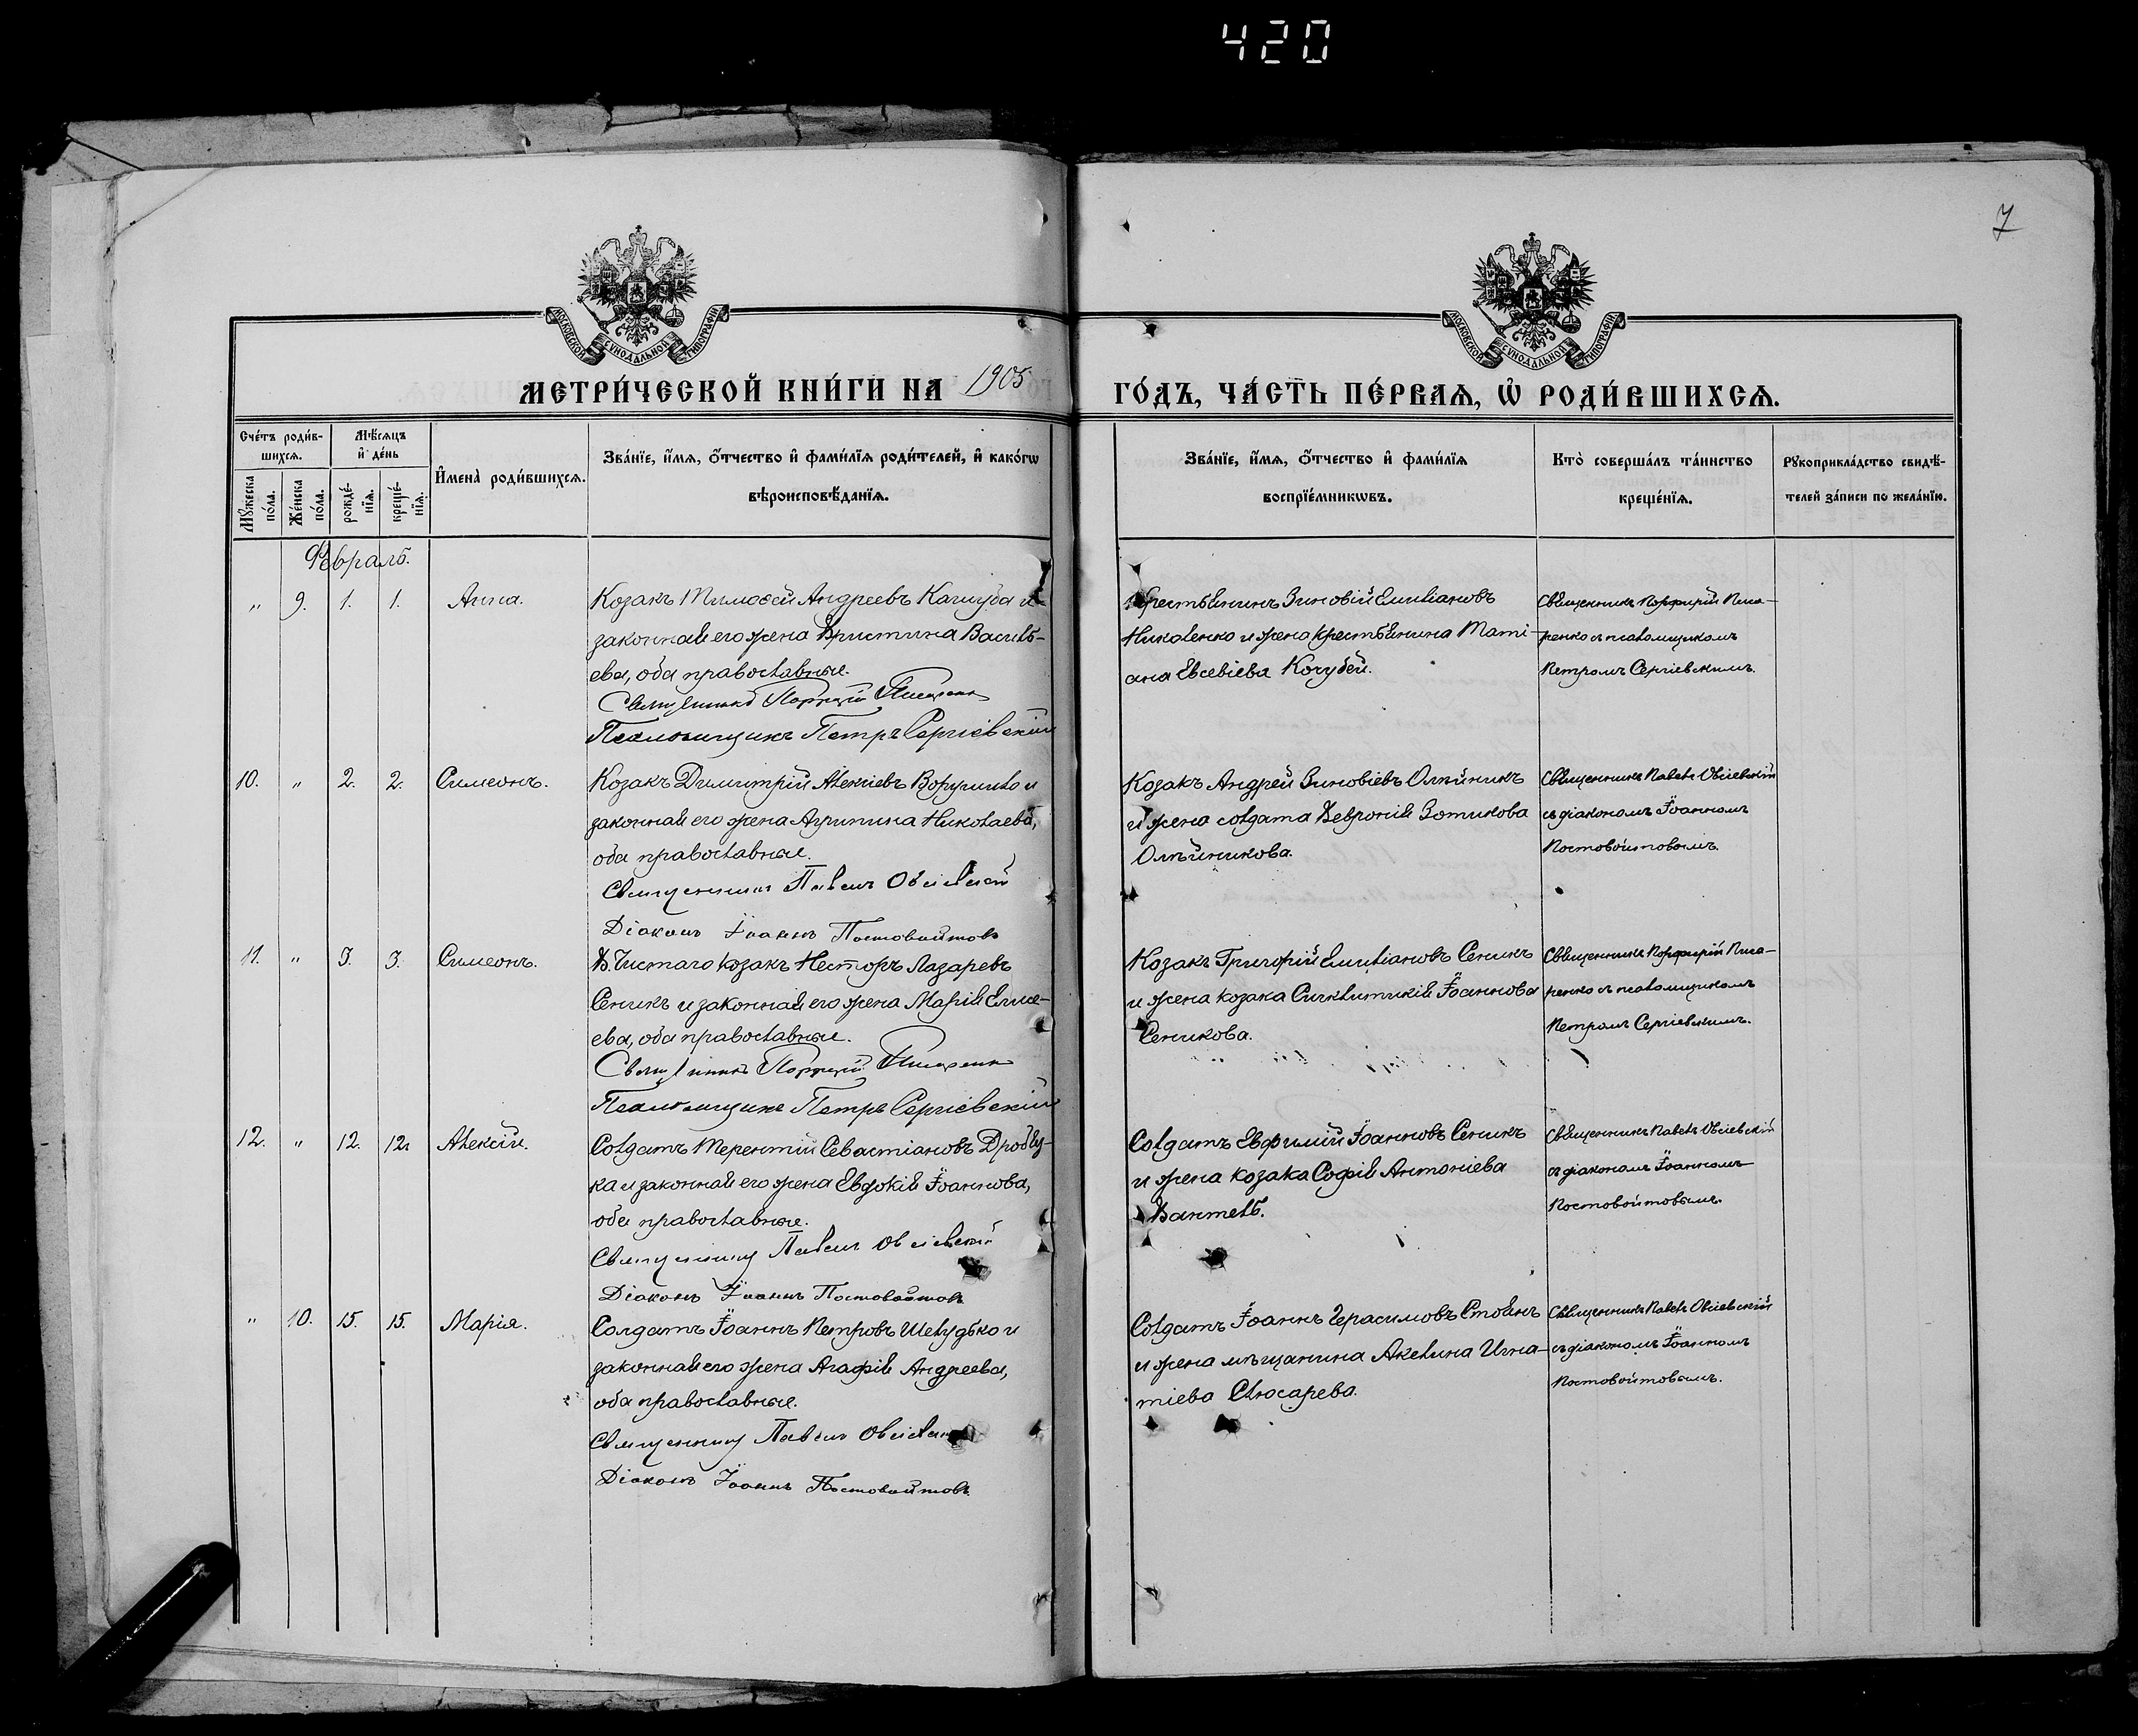 420
7
МОСКОВСКОЙ СѴНОДАЛЬНОЙ ТИПОГРАФІИ
МОСКОВСКОЙ СѴНОДАЛЬНОЙ ТИПОГРАФІИ
МЕТРИ́ЧЕСКОЙ КНИ́ГИ НА 1905 ГО́ДЪ, ЧА́СТЬ ПЕ́РВАѦ, Ѡ РОДИ́ВШИХСѦ.
Сче́тъ роди́в-
шихсѧ.
Мꙋжеска по́ла.
Же́нска по́ла.
Мѣ́сѧцъ
и де́нь
рожде́-
нїѧ.
креще́-
нїѧ.
Имена̀ роди́вшихсѧ.
Зва́нїе, и́мѧ, о́тчество и фами́лїѧ роди́телей, и како́гѡ
вѣроисповѣ́данїѧ.
Зва́нїе, и́мѧ, о́тчество и фами́лїѧ
воспрїе́мникѡвъ.
Кто̀ соверша́лъ та́инство
креще́нїѧ.
Рꙋкоприкла́дство свидѣ́-
телей за́писи по жела́нїю.
Февраль.
„ 9. 1. 1. Анна.
Козакъ Тимоѳей Андреевъ Кашуба и
законная его жена Христина Василь-
ева, оба православные.
Священникъ Порфирій Писаренко
Псаломщикъ Петръ Сергіевскій
Крестьянинъ Зиновій Емиліановъ
Николенко и жена крестьянина Тати-
ана Евсевіева Кочубей.
Священникъ Порфирій Писа-
ренко съ псаломщикомъ
Петромъ Сергіевскимъ.
10. „ 2. 2. Симеонъ.
Козакъ Димитрій Алексіевъ и
законная его жена Агрипина Николаева,
оба православные.
Священникъ Павелъ Овсіевскій
Діаконъ Іоаннъ Постовойтовъ
Козакъ Андрей Зиновіевъ Олѣйникъ
и жена солдата Февронія Зотикова
Олѣйникова.
Священникъ Павелъ Овсіевскій
съ діакономъ Іоанномъ
Постовойтовымъ.
11. „ 3. 3. Симеонъ.
Х. Чистаго козакъ Несторъ Лазаревъ
Сеникъ и законная его жена Марія Елисе-
ева, оба православные.
Священникъ Порфирій Писаренко
Псаломщикъ Петръ Сергіевскій
Козакъ Григорій Емиліановъ Сеникъ
и жена козака Синклитикія Іоаннова
Сеникова.
Священникъ Порфирій Писа-
ренко съ псаломщикомъ
Петромъ Сергіевскимъ.
12. „ 12. 12. Алексій.
Солдатъ Терентій Севастіановъ Дробяз-
ка и законная его жена Евдокія Іоаннова,
оба православные.
Священникъ Павелъ Овсіевскій
Діаконъ Іоаннъ Постовойтовъ
Солдатъ Евфимій Іоанновъ Сеникъ
и жена козака Софія Антоніева
Вантель.
Священникъ Павелъ Овсіевскій
съ діакономъ Іоанномъ
Постовойтовымъ.
„ 10. 15. 15. Марія.
Солдатъ Іоаннъ Петровъ Шелудько и
законная его жена Агафія Андреева,
оба православные.
Священникъ Павелъ Овсіевскій
Діаконъ Іоаннъ Постовойтовъ.
Солдатъ Іоаннъ Герасимовъ Стоянъ
и жена мѣщанина Акелина Игна-
тіева Слюсарева.
Священникъ Павелъ Овсіевскій
съ діакономъ Іоанномъ
Постовойтовымъ.